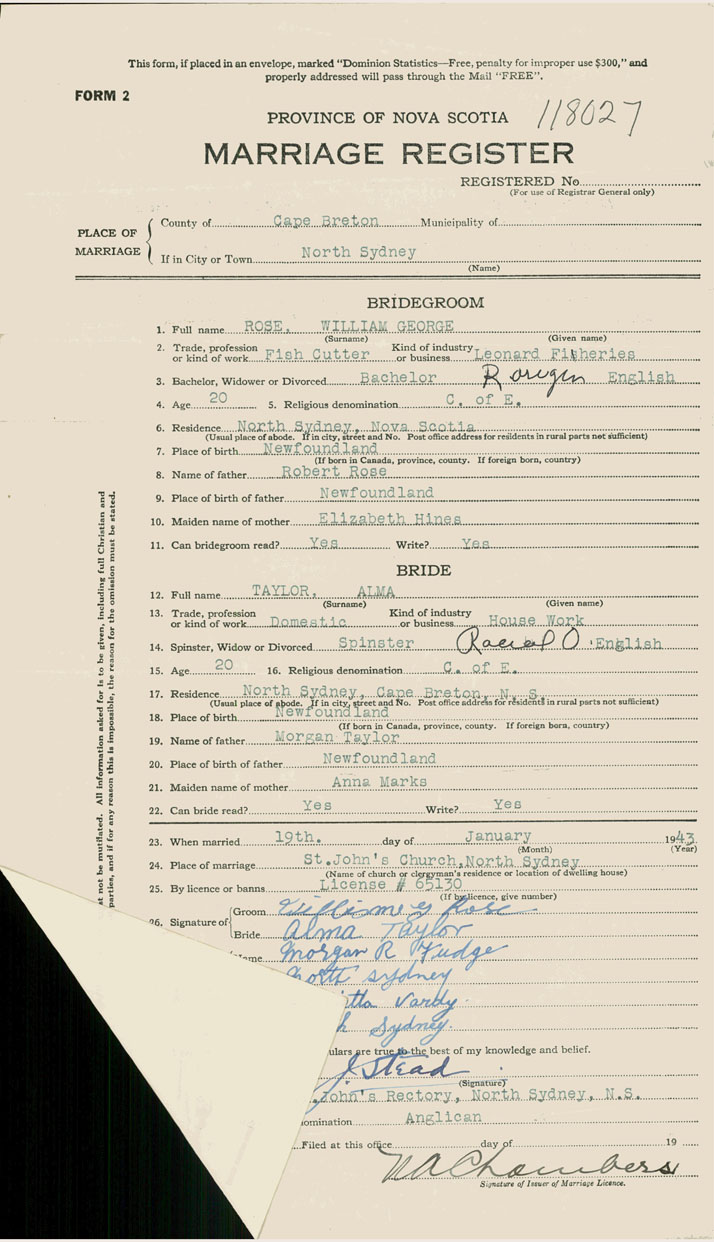 This form, if placed in an envelope, marked "Dominion Statistics—Free, penalty for improper use $300," and
properly addressed will pass through the Mail "FREE".
FORM 2
PROVINCE OF NOVA SCOTIA 118027
MARRIAGE REGISTER
REGISTERED No
(For use of Registrar General only)
PLACE OF MARRIAGE
County of Cape Breton Municipality of
If in City or Town North Sydney
(Name)
BRIDEGROOM
1. Full name ROSE, WILLIAM GEORGE
(Surname) (Given name)
2. Trade, profession or kind of work Fish Cutter Kind of industry or business Leonard Fisheries
3. Bachelor, Widower or Divorced Bachelor R origin English
4. Age 20 5. Religious denomination C. of E.
6. Residence North Sydney, Nova Scotia
(Usual place of abode. If in city, street and No. Post office address for residents in rural parts not sufficient)
7. Place of birth Newfoundland
(If born in Canada, province, county. If foreign born, country)
8. Name of father Robert Rose
9. Place of birth of father Newfoundland
10. Maiden name of mother Elizabeth Hines
11. Can bridegroom read? Yes Write? Yes
BRIDE
12. Full name TAYLOR, ALMA
(Surname) (Given name)
13. Trade, profession or kind of work Domestic Kind of industry or business House Work
14. Spinster, Widow or Divorced Spinster Racial O English
15. Age 20 16. Religious denomination C. of E.
17. Residence North Sydney, Cape Breton, N. S.
(Usual place of abode. If in city, street and No. Post office address for residents in rural parts not sufficient)
18. Place of birth Newfoundland
(If born in Canada, province, county. If foreign born, country)
19. Name of father Morgan Taylor
20. Place of birth of father Newfoundland
21. Maiden name of mother Anna Marks
22. Can bride read? Yes Write? Yes
23. When married 19th. day of January 1943
(Month) (Year)
24. Place of marriage St.John's Church,North Sydney
(Name of church or clergyman's residence or location of dwelling house)
25. By licence or banns License # 65130
(If by licence, give number)
26. Signature of
Groom William G Rose
Bride Alma Taylor
ame Morgan R Fudge
North Sydney
itta Vardy
h Sydney
ulars are true to the best of my knowledge and belief.
J Stead
(Signature)
.John's Rectory, North Sydney, N.S.
omination Anglican
Filed at this office day of 19
W A Chambers
Signature of Issuer of Marriage Licence.
at not be mutilated. All information asked for is to be given, including full Christian and
parties, and if for any reason this is impossible, the reason for the omission must be stated.